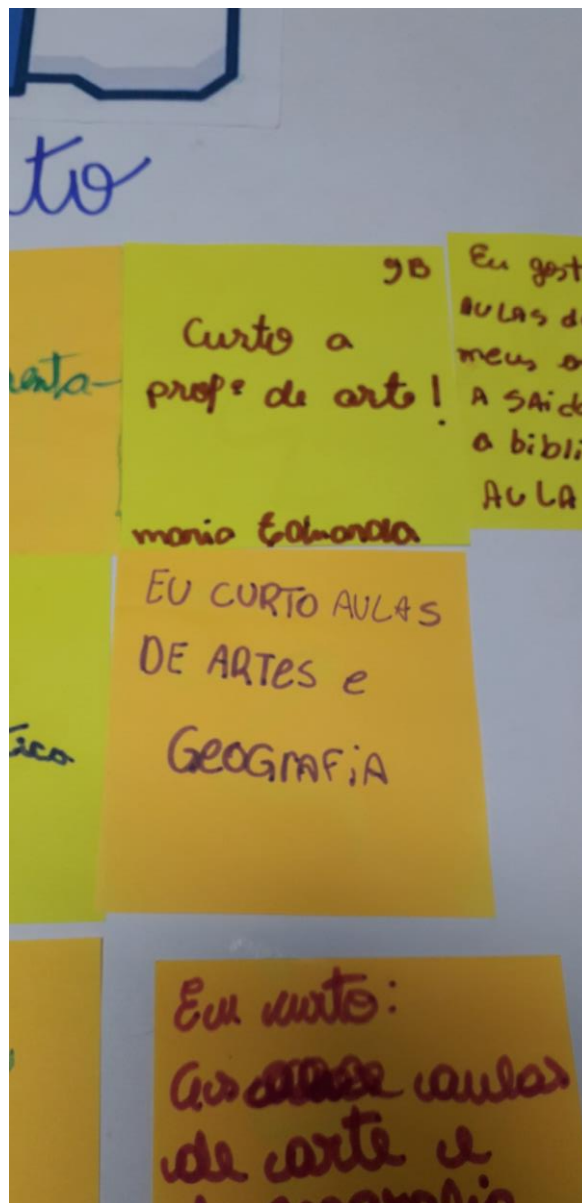 to
enta-
9B
Curto a
profª de arte!
maria Eduarda
Eu gost
AULAS d
meus a
A SAid
a bibli
AULA
EU CURTO AULAS
DE ARTES e
GEOGRAFiA
ico
Eu curto:
As aulas
de arte e